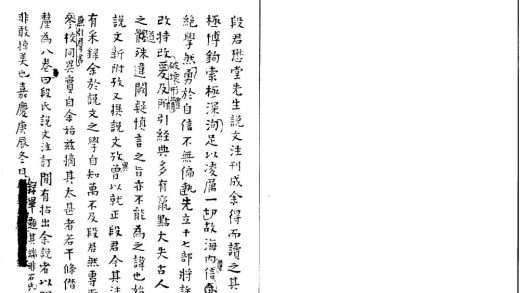 段君懋堂先生說文注刊成余得而讀之其
極博鉤索極深洵足以凌厲一切故海內後
絕學然勇於自信不無偏執先立十七部將許
破壞形體
改特改愛及所引經典多有竄點大失古人
之殊違闕疑慎言之旨亦不能為之諱也始
說文新附攷又撰說文攷曾以就正段君今其注
有采錄余於說文之學自知萬不及段君無
參校同異實自余始茲摘其太甚者若干條
釐為八卷曰段氏說文注訂間有拈出余說者以
非敢掠美也嘉慶庚辰冬日